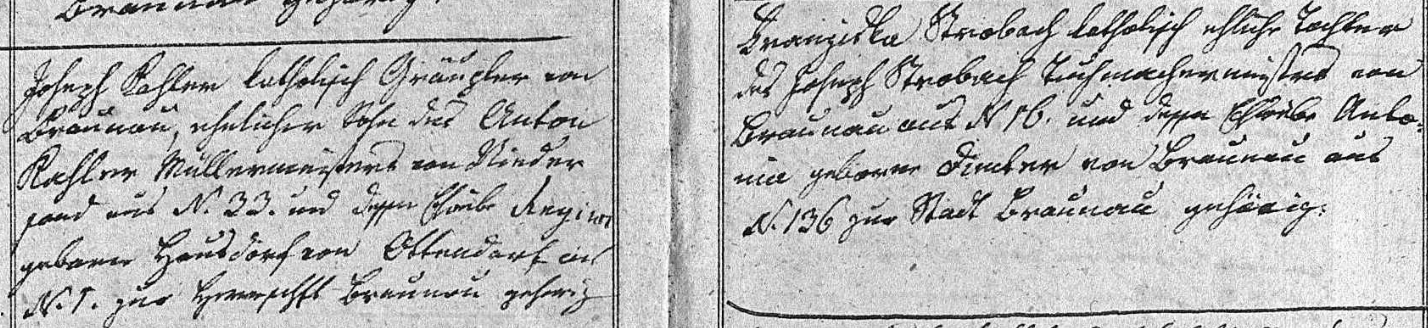 Braunau gehörig.
Joseph Kahler katholisch Gräupler von
Braunau, ehelicher Sohn des Anton
Kahler Müllermeisters von Nieder
sand aus N. 33. und dessen Eheweibe Regina
geborne Hausdorf von Ottendorf aus
N. 1. zur Herrschft Braunau gehörig
Franziska Strobach katholisch ehliche Tochter
des Joseph Strobach Tuchmachermeisters von
Braunau aus N 16. und dessen Eheweibe Anto-
nia geborne Dimter von Braunau aus
N. 136 zur Stadt Braunau gehörig.